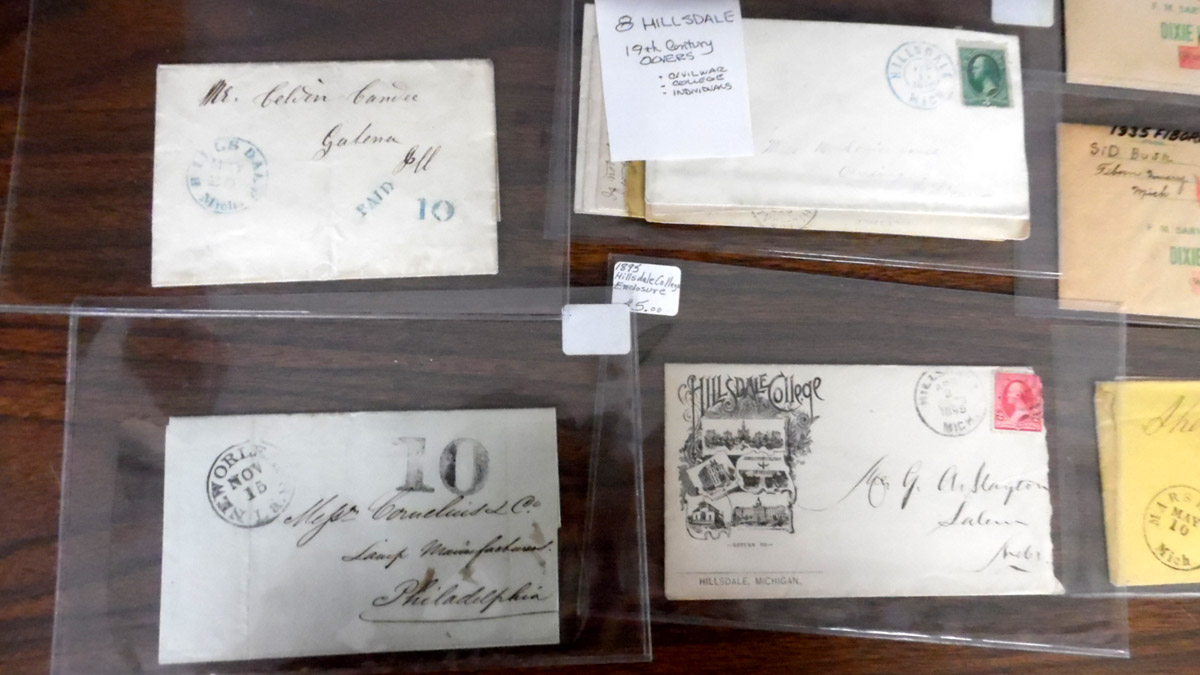 Mr. Celdin Candee
Galena
Ill
HILLSDALE
Mich
PAID
10
8 HILLSDALE
19th Century
COVERS
• CIVIL WAR
- COLLEGE
- INDIVIDUALS
HILLSDALE
MICH
1895
Hillsdale College
Enclosure
$5.00
NEW ORLEANS
NOV
15
LA.
10
Messrs Cornelius & Co.
Lamp Manufacturers.
Philadelphia
HILLSDALE COLLEGE
—RETURN TO—
HILLSDALE, MICHIGAN,
MICH
Mr G. A. Slayton
Salem
Nebr
F. M. SAB
DIXIE
1935 FIBOR
SID BUSH
Fiborn Quarry
Mich
F. M. SAB
DIXIE
MARS
MAY
10
Mich